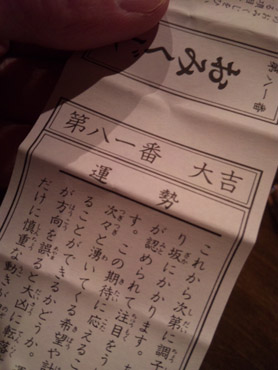 おみく
第八一番 大吉
運勢
これから次第に調子
り坂にかかります。
が認められて注目を
す。この期待に応える
次々と湧いてくる希望や計
ることができるかどうか。
が方向を誤ると大凶に転落
だけに慎重な動き